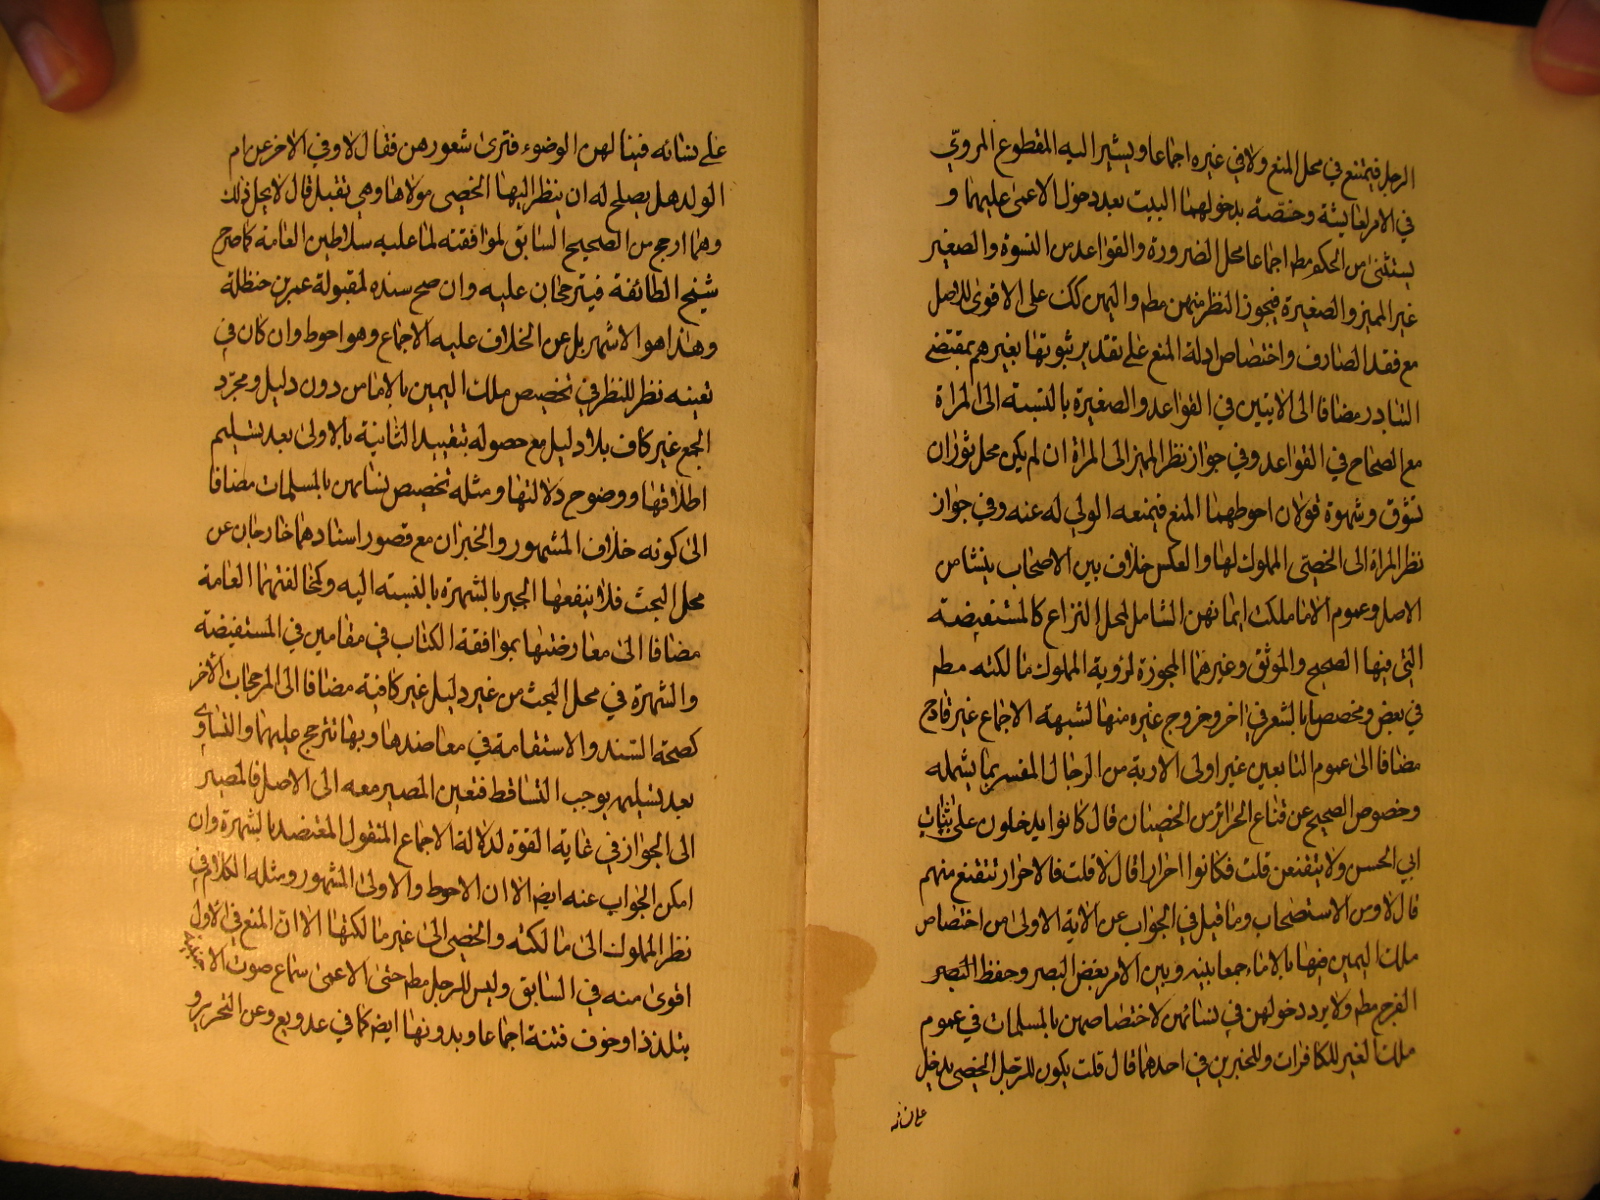 الرجل فيمتنع في محل المنع ولا في غيره اجماعا ويشير اليه المقطوع المروي
في الامر لعايشة وحفصة بدخولهما البيت بعد دخول الاعمى عليهما و
يستثنى من الحكم مط اجماعا محل الضرورة والقواعد من النسوة والصغير
غير المميز والصغيرة فيجوز النظر منهن مط واليهن كك على الاقوى للاصل
مع فقد الصارف واختصاص ادلة المنع على تقدير ثبوتها بغيرهم بمقتضى
التبادر مضافا الى الايتين في القواعد والصغيرة بالنسبة الى المراة
مع الصحاح في القواعد وفي جواز نظر المميز الى المراة ان لم يكن محل ثوران
تشوق وشهوة قولان احوطهما المنع فيمنعه الولي له عنه وفي جواز
نظر المراة الى الخصي المملوك لها والعكس خلاف بين الاصحاب ينشا من
الاصل وعموم الا ما ملكت ايمانهن الشامل لمحل النزاع كالمستفيضة
التي فيها الصحيح والموثق وغيرهما المجوزة لرؤية المملوك مالكته مط
في بعض ومخصصا بالشعر في اخر وخروج غيره منها لشبهة الاجماع غير قادح
مضافا الى عموم التابعين غير اولى الاربة من الرجال المفسر بما يشمله
وخصوص الصحيح عن قناع الحرائر من الخصيان قال كانوا يدخلون على بنات
ابي الحسن ولا يتقنعن قلت فكانوا احرارا قال لا قلت فالاحرار تتقنع منهم
قال لا ومن الاستصحاب وما قيل في الجواب عن الاية الاولى من اختصاص
ملك اليمين فيها بالاماء جمعا بينه وبين الامر بغض البصر وحفظ
الفرج مط ولا يرد دخولهن في نسائهن لاختصاصهن بالمسلمات في عموم
ملك الغير للكافرات وللخبرين في احدهما قال قلت يكون للرجل الخصي يدخل
على نسائه
على نسائه فيناولهن الوضوء فترى شعورهن فقال لا وفي الاخر عن ام
الولد هل يصلح له ان ينظر اليها الخصي مولاها وهي تقبل قال لا يحل ذلك
وهما ارجح من الصحيح السابق لموافقته لما عليه سلاطين العامة كما صرح
شيخ الطائفة فيترجحان عليه وان صح سنده لمقبولة عمر بن حنظلة
وهذا هو الاشهر بل عن الخلاف عليه الاجماع وهو احوط وان كان في
تعينه نظر للنظر في تخصيص ملك اليمين بالاماء من دون دليل ومجرد
الجمع غير كاف بلا دليل مع حصوله بتقييد الثانية بالاولى بعد تسليم
اطلاقها ووضوح دلالتها ومثله تخصيص نسائهن بالمسلمات مضافا
الى كونه خلاف المشهور والخبران مع قصور اسنادهما خارجان عن
محل البحث فلا ينفعها الجبر بالشهرة بالنسبة اليه وكمخالفتهما العامة
مضافا الى معارضتها بموافقة الكتاب في مقامين في المستفيضة
والشهرة في محل البحث من غير دليل غير كافية مضافا الى المرجحات الاخر
كصحة السند والاستقامة في معاضدها وبها تترجح عليهما والتساوي
بعد تسليمه يوجب التساقط فتعين المصير معه الى الاصل فالمصير
الى الجواز في غاية القوة لدلالة الاجماع المنقول المعتضد بالشهرة وان
امكن الجواب عنه ايض الا ان الاحوط والاولى المشهور ومثله الكلام في
نظر المملوك الى مالكته والخصي الى غير مالكتها الا ان المنع في الاول
اقوى منه في السابق وليس للرجل مط حتى الاعمى سماع صوت الاجنبية
بتلذذ او خوف فتنة اجماعا وبدونها ايض كما في عد ويع وعن التحرير و